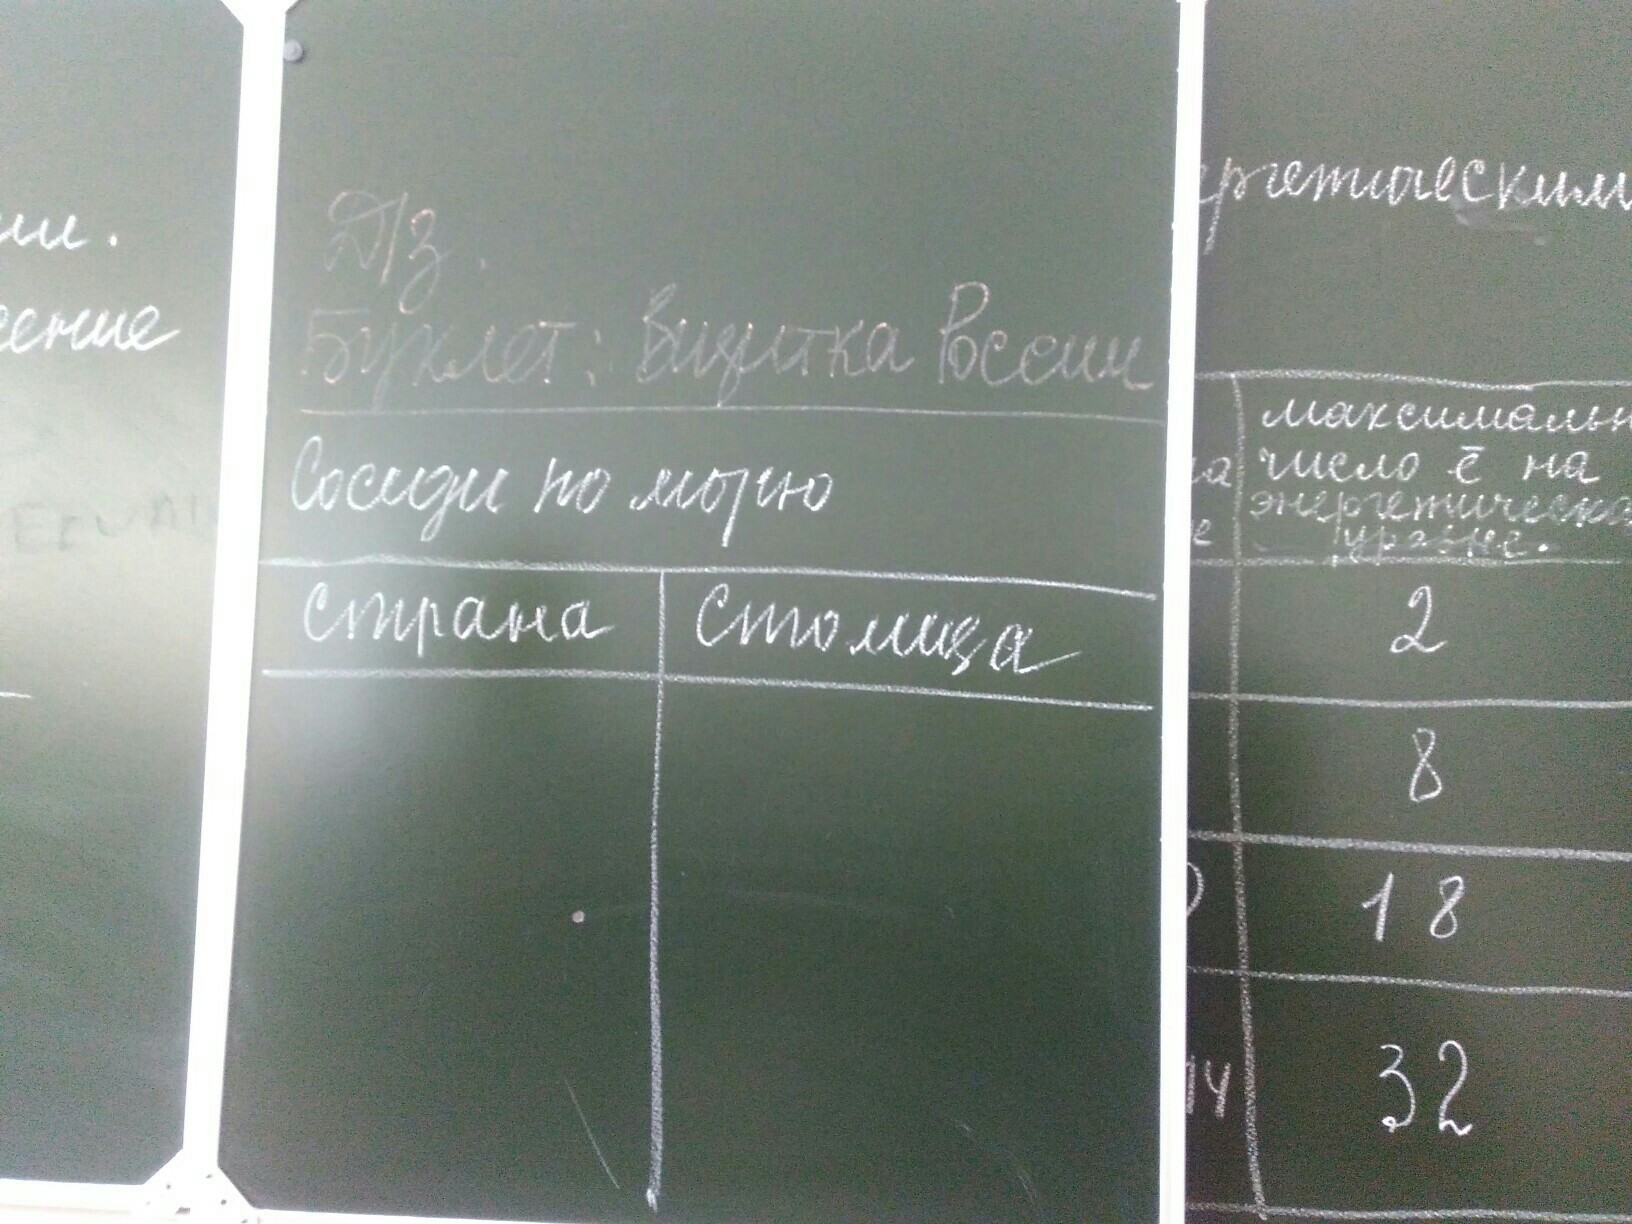 ии.
ение
Д/з.
Буклет: Визитка России
Соседи по морю
Страна
Столица
ергетическим
максимальн
число ē на
энергетическо
уровне.
2
8
18
32